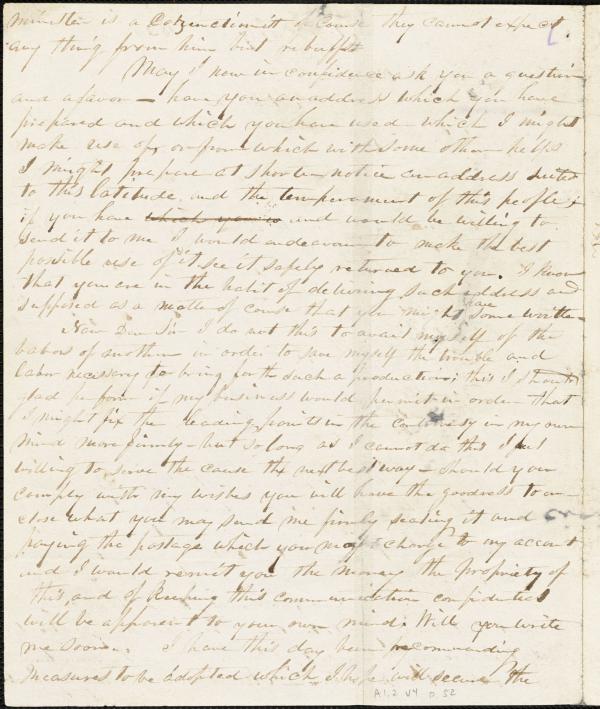 minister is a Colonizationist of course they cannot expect
any thing from him but rebuffs
May I now in confidence ask you a question
and a favor — have you an address which you have
prepared and which you have used which I might
make use of, or from which with some other helps
I might prepare at short notice an address suited
to this latitude and the temperament of this people;
if you have which you and would be willing to
send it to me I would endeavour to make the best
possible use of it, see it safely returned to you. I know
that you are in the habit of delivering such address and
supposed as a matter of course that you might have some written
Now Dear Sir I do not this to avail myself of the
labors of another in order to save myself the trouble and
labor necessary to bring forth such a production; this I should
glad perform if my business would permit in order that
I might fix the leading points in the controversy in my own
mind more firmly — but so long as I cannot do this I feel
willing to serve the cause the next best way — should you
comply with my wishes you will have the goodness to en-
close what you may send me firmly sealing it and
paying the postage which you may charge to my account
and I would remit you the money the propriety of
this, and of keeping this communication confidential
will be apparent to your own mind. Will you write
me soon. I have this day been recommending
measures to be adopted which I hope will secure the
A1.2 V4 p 52